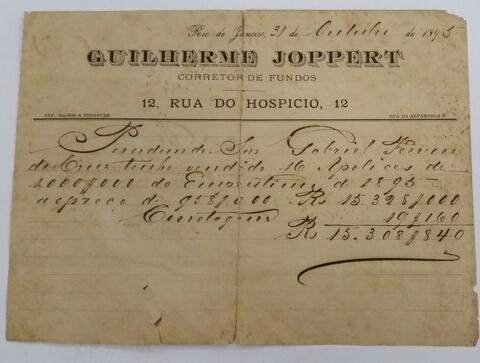 Rio de Janeiro, 31 de Outubro de 1895
GUILHERME JOPPERT
CORRETOR DE FUNDOS
12, RUA DO HOSPICIO, 12
RUA DA ALFANDEGA
Snr Gabriel
da Cruz tenho vendido 16 Apolices de
1000$000 do Emprestimo de 1895
ao preço de 958$000 Rs 15.328$000
Corretagem 19$160
Rs 15.308$840